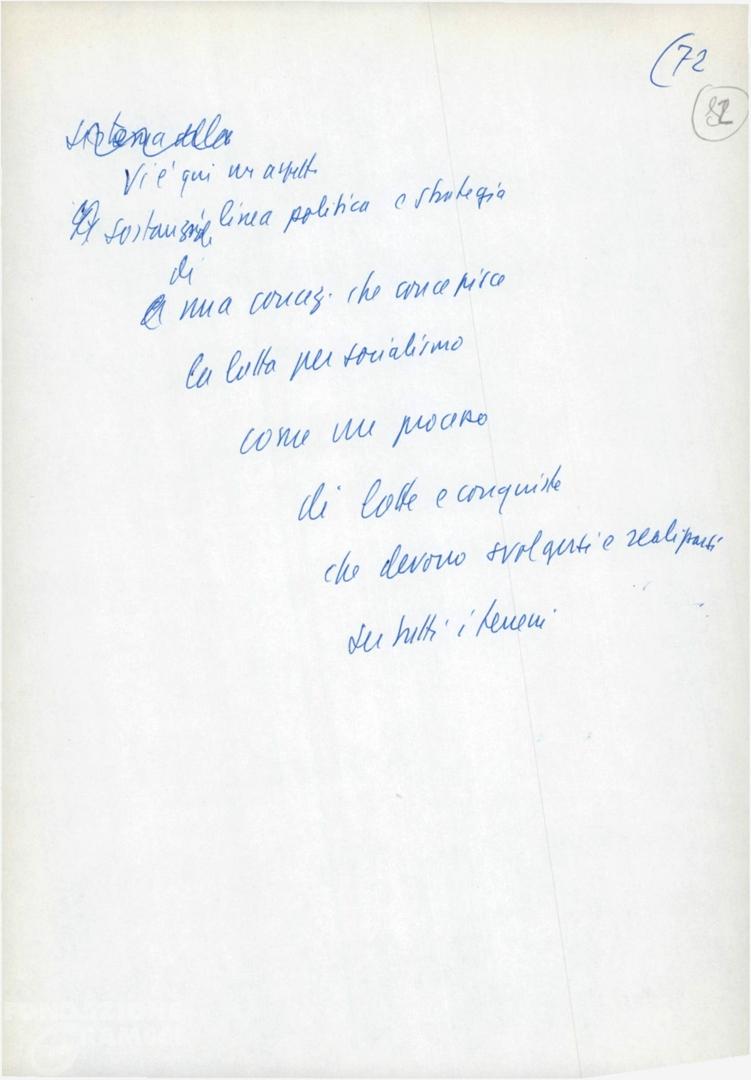 (72
82
Vi è qui un aspetto
sostanziale linea politica e strategia
di
una concez. che concepisce
la lotta per socialismo
come un processo
di lotte e conquiste
che devono svolgersi e realizzarsi
su tutti i terreni
FONDAZIONE
GRAMSCI